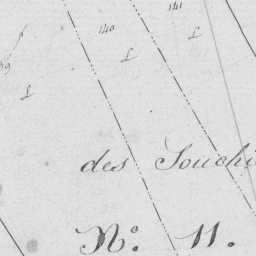 141
140
£
£
£
des
N°. 11.